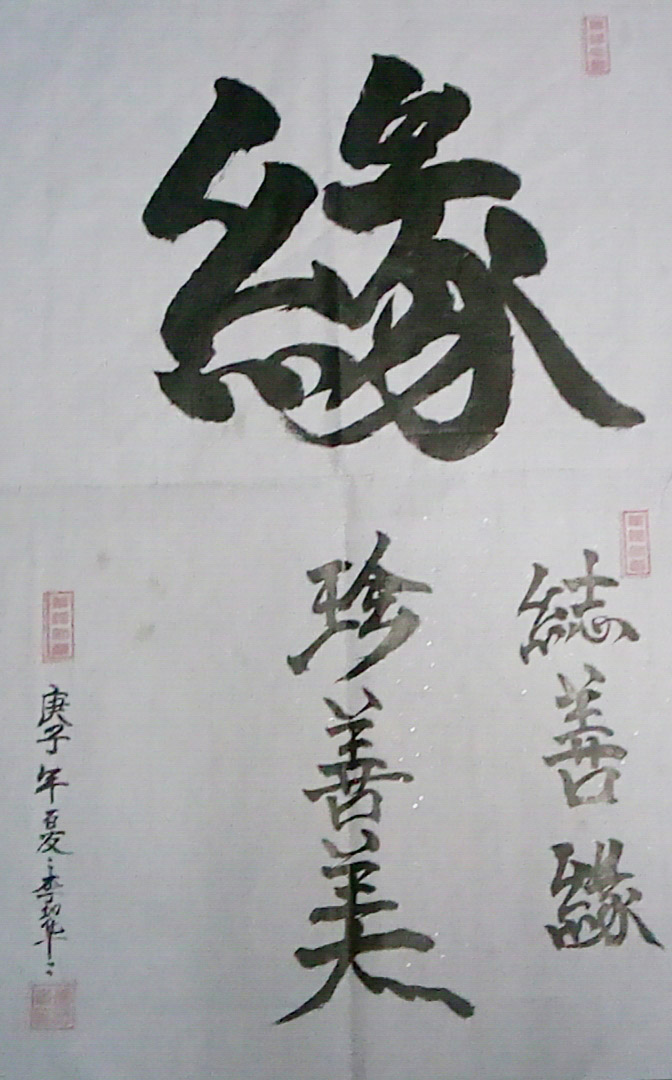 緣
結善緣
珍善美
庚子年夏李